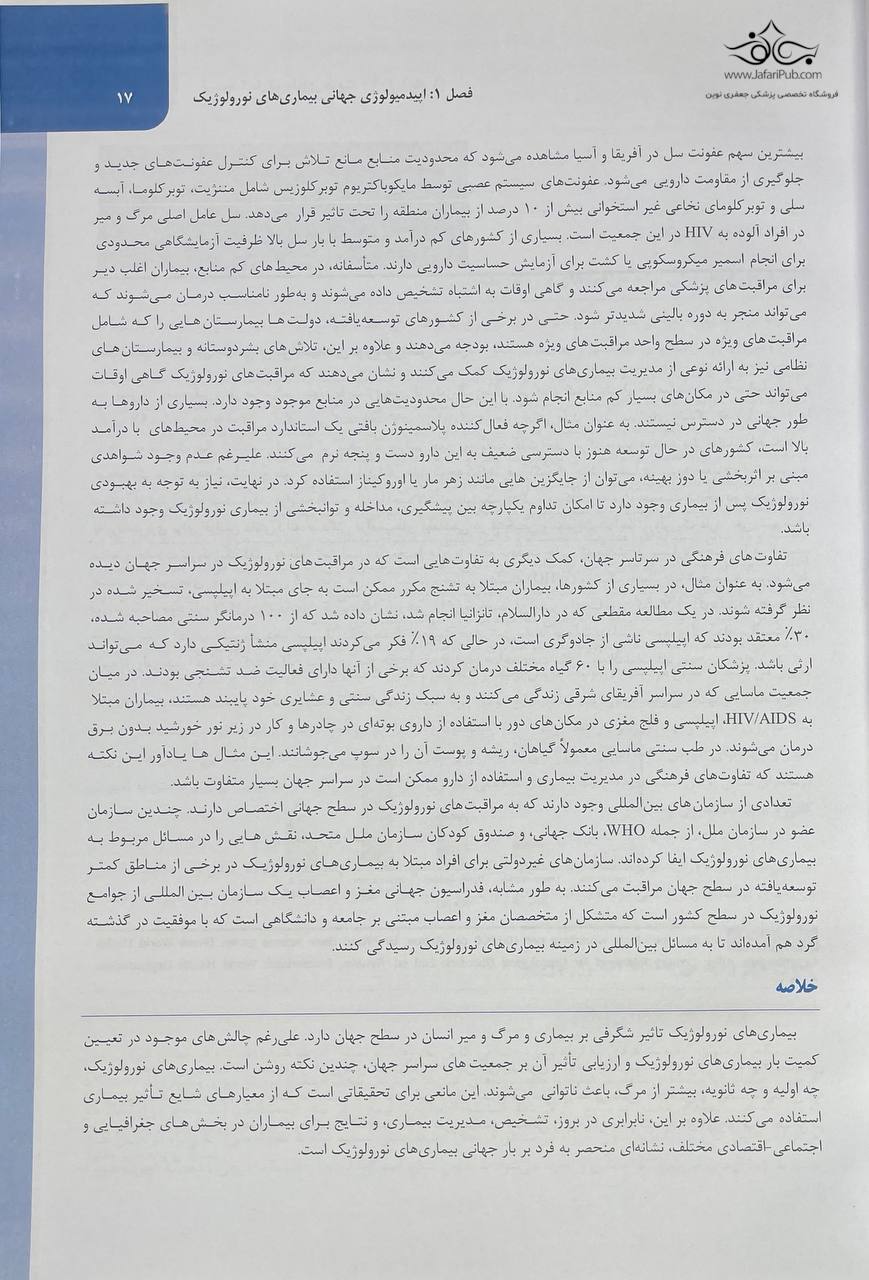 www.JafariPub.com
فروشگاه تخصصی پزشکی جعفری نوین
فصل ۱: اپیدمیولوژی جهانی بیماری‌های نورولوژیک
۱۷
بیشترین سهم عفونت سل در آفریقا و آسیا مشاهده می‌شود که محدودیت منابع مانع تلاش برای کنترل عفونت‌های جدید و
جلوگیری از مقاومت دارویی می‌شود. عفونت‌های سیستم عصبی توسط مایکوباکتریوم توبرکلوزیس شامل مننژیت، توبرکلوما، آبسه
سلی و توبرکلومای نخاعی غیر استخوانی بیش از ۱۰ درصد از بیماران منطقه را تحت تاثیر قرار می‌دهد. سل عامل اصلی مرگ و میر
در افراد آلوده به HIV در این جمعیت است. بسیاری از کشورهای کم درآمد و متوسط با بار سل بالا ظرفیت آزمایشگاهی محدودی
برای انجام اسمیر میکروسکوپی یا کشت برای آزمایش حساسیت دارویی دارند. متأسفانه، در محیط‌های کم منابع، بیماران اغلب دیر
برای مراقبت‌های پزشکی مراجعه می‌کنند و گاهی اوقات به اشتباه تشخیص داده می‌شوند و به‌طور نامناسب درمان می‌شوند که
می‌تواند منجر به دوره بالینی شدیدتر شود. حتی در برخی از کشورهای توسعه‌یافته، دولت‌ها بیمارستان‌هایی را که شامل
مراقبت‌های ویژه در سطح واحد مراقبت‌های ویژه هستند، بودجه می‌دهند و علاوه بر این، تلاش‌های بشردوستانه و بیمارستان‌های
نظامی نیز به ارائه نوعی از مدیریت بیماری‌های نورولوژیک کمک می‌کنند و نشان می‌دهند که مراقبت‌های نورولوژیک گاهی اوقات
می‌تواند حتی در مکان‌های بسیار کم منابع انجام شود. با این حال محدودیت‌هایی در منابع موجود وجود دارد. بسیاری از داروها به
طور جهانی در دسترس نیستند. به عنوان مثال، اگرچه فعال‌کننده پلاسمینوژن بافتی یک استاندارد مراقبت در محیط‌های با درآمد
بالا است، کشورهای در حال توسعه هنوز با دسترسی ضعیف به این دارو دست و پنجه نرم می‌کنند. علیرغم عدم وجود شواهدی
مبنی بر اثربخشی یا دوز بهینه، می‌توان از جایگزین هایی مانند زهر مار یا اوروکیناز استفاده کرد. در نهایت، نیاز به توجه به بهبودی
نورولوژیک پس از بیماری وجود دارد تا امکان تداوم یکپارچه بین پیشگیری، مداخله و توانبخشی از بیماری نورولوژیک وجود داشته
باشد.
تفاوت‌های فرهنگی در سرتاسر جهان، کمک دیگری به تفاوت‌هایی است که در مراقبت‌های نورولوژیک در سراسر جهان دیده
می‌شود. به عنوان مثال، در بسیاری از کشورها، بیماران مبتلا به تشنج مکرر ممکن است به جای مبتلا به اپیلپسی، تسخیر شده در
نظر گرفته شوند. در یک مطالعه مقطعی که در دارالسلام، تانزانیا انجام شد، نشان داده شد که از ۱۰۰ درمانگر سنتی مصاحبه شده،
۳۰٪ معتقد بودند که اپیلپسی ناشی از جادوگری است، در حالی که ۱۹٪ فکر می‌کردند اپیلپسی منشأ ژنتیکی دارد که می‌تواند
ارثی باشد. پزشکان سنتی اپیلپسی را با ۶۰ گیاه مختلف درمان کردند که برخی از آنها دارای فعالیت ضد تشنجی بودند. در میان
جمعیت ماسایی که در سراسر آفریقای شرقی زندگی می‌کنند و به سبک زندگی سنتی و عشایری خود پایبند هستند، بیماران مبتلا
به HIV/AIDS، اپیلپسی و فلج مغزی در مکان‌های دور با استفاده از داروی بوته‌ای در چادرها و کار در زیر نور خورشید بدون برق
درمان می‌شوند. در طب سنتی ماسایی معمولاً گیاهان، ریشه و پوست آن را در سوپ می‌جوشانند. این مثال ها یادآور این نکته
هستند که تفاوت‌های فرهنگی در مدیریت بیماری و استفاده از دارو ممکن است در سراسر جهان بسیار متفاوت باشد.
تعدادی از سازمان‌های بین‌المللی وجود دارند که به مراقبت‌های نورولوژیک در سطح جهانی اختصاص دارند. چندین سازمان
عضو در سازمان ملل، از جمله WHO، بانک جهانی، و صندوق کودکان سازمان ملل متحد، نقش هایی را در مسائل مربوط به
بیماری‌های نورولوژیک ایفا کرده‌اند. سازمان‌های غیردولتی برای افراد مبتلا به بیماری‌های نورولوژیک در برخی از مناطق کمتر
توسعه‌یافته در سطح جهان مراقبت می‌کنند. به طور مشابه، فدراسیون جهانی مغز و اعصاب یک سازمان بین المللی از جوامع
نورولوژیک در سطح کشور است که متشکل از متخصصان مغز و اعصاب مبتنی بر جامعه و دانشگاهی است که با موفقیت در گذشته
گرد هم آمده‌اند تا به مسائل بین‌المللی در زمینه بیماری‌های نورولوژیک رسیدگی کنند.
خلاصه
بیماری‌های نورولوژیک تاثیر شگرفی بر بیماری و مرگ و میر انسان در سطح جهان دارد. علی‌رغم چالش‌های موجود در تعیین
کمیت بار بیماری‌های نورولوژیک و ارزیابی تأثیر آن بر جمعیت های سراسر جهان، چندین نکته روشن است. بیماری‌های نورولوژیک،
چه اولیه و چه ثانویه، بیشتر از مرگ، باعث ناتوانی می‌شوند. این مانعی برای تحقیقاتی است که از معیارهای شایع تأثیر بیماری
استفاده می‌کنند. علاوه بر این، نابرابری در بروز، تشخیص، مدیریت بیماری، و نتایج برای بیماران در بخش‌های جغرافیایی و
اجتماعی-اقتصادی مختلف، نشانه‌ای منحصر به فرد بر بار جهانی بیماری‌های نورولوژیک است.